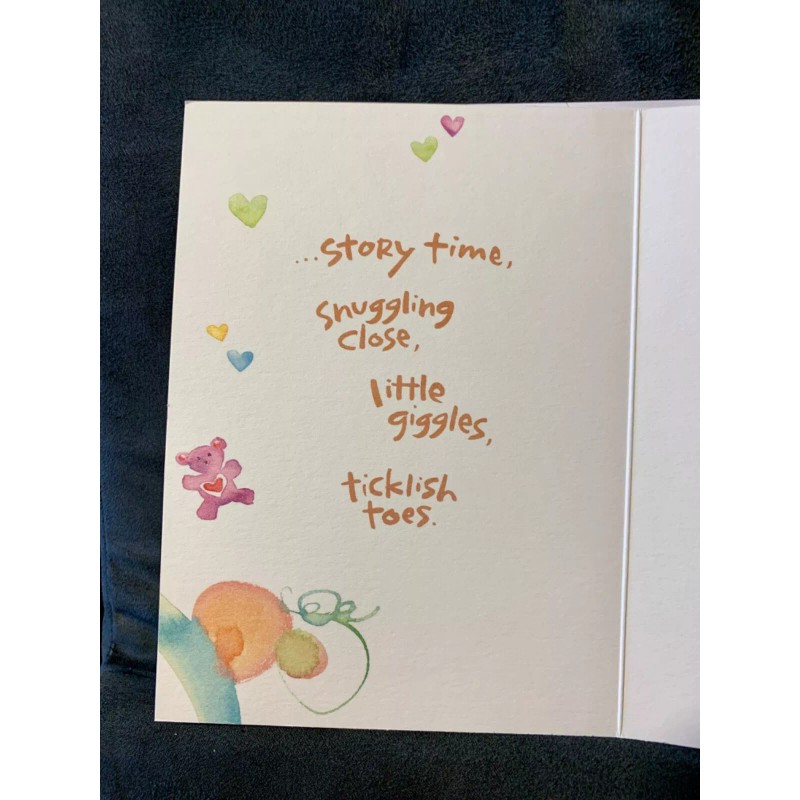 ...story time,
snuggling
close,
little
giggles,
ticklish
toes.